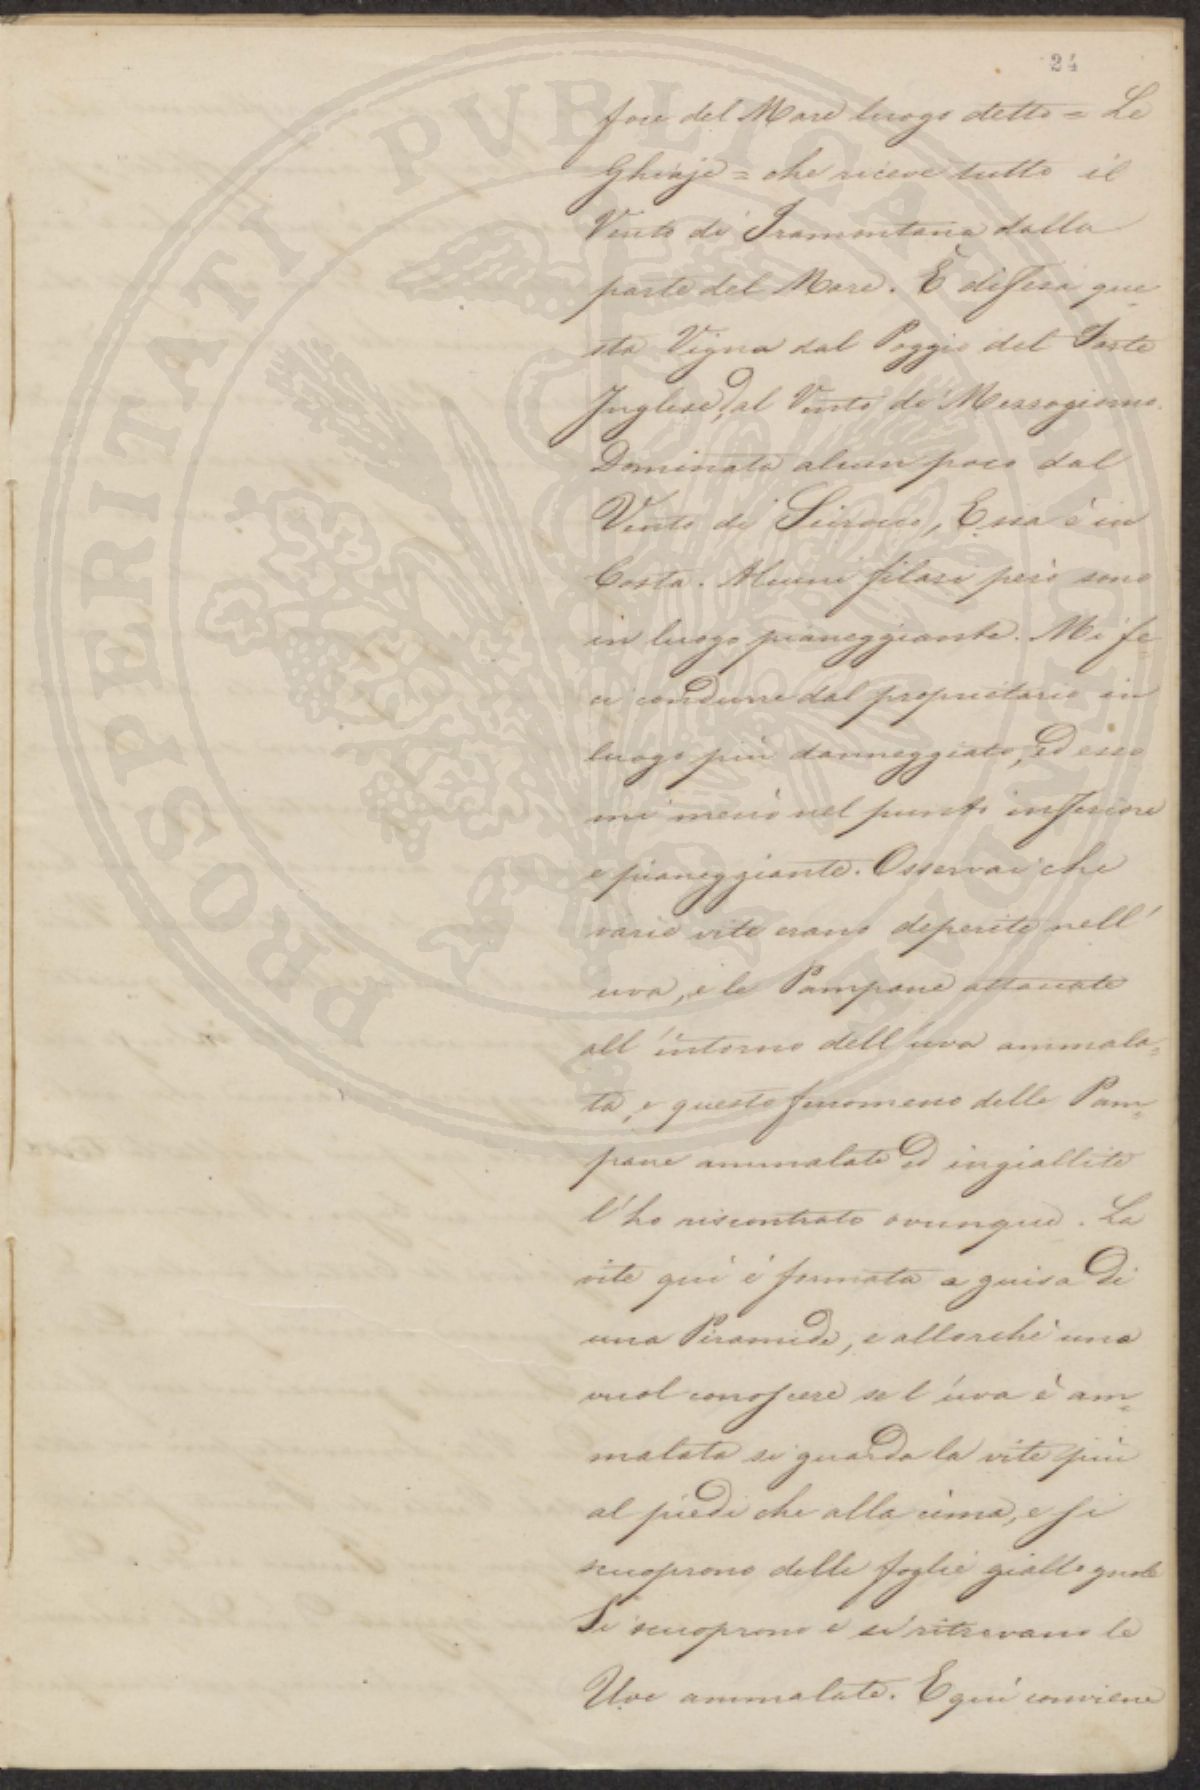 24
PROSPERITATI PVBLICAE AVGENDAE
foce del Mare luogo detto = Le
Ghiaje = che riceve tutto il
Vento di Tramontana dalla
parte del Mare. È difesa que=
sta Vigna dal Poggio del Forte
Inglese, dal Vento di Mezzogiorno.
Dominata alcun poco dal
Vento di Scirocco, Essa è in
Costa. Alcuni filari però sono
in luogo pianeggiante. Mi fe=
ci condurre dal proprietario in
luogo più danneggiato, ed esso
mi menò nel punto inferiore
e pianeggiante. Osservai che
varie vite erano deperite nell'
uva, e le Pampane attaccate
all'intorno dell'uva ammala=
ta, e questo fenomeno delle Pam=
pane ammalate ed ingiallite
l'ho riscontrato ovunque. La
vite quì è formata a guisa di
una Piramide, e allorchè uno
vuol conoscere se l'uva è am=
malata si guarda la vite più
al piedi che alla cima, e si
scuoprono delle foglie giallognole
Si scuoprono e si ritrovano le
Uve ammalate. E quì conviene